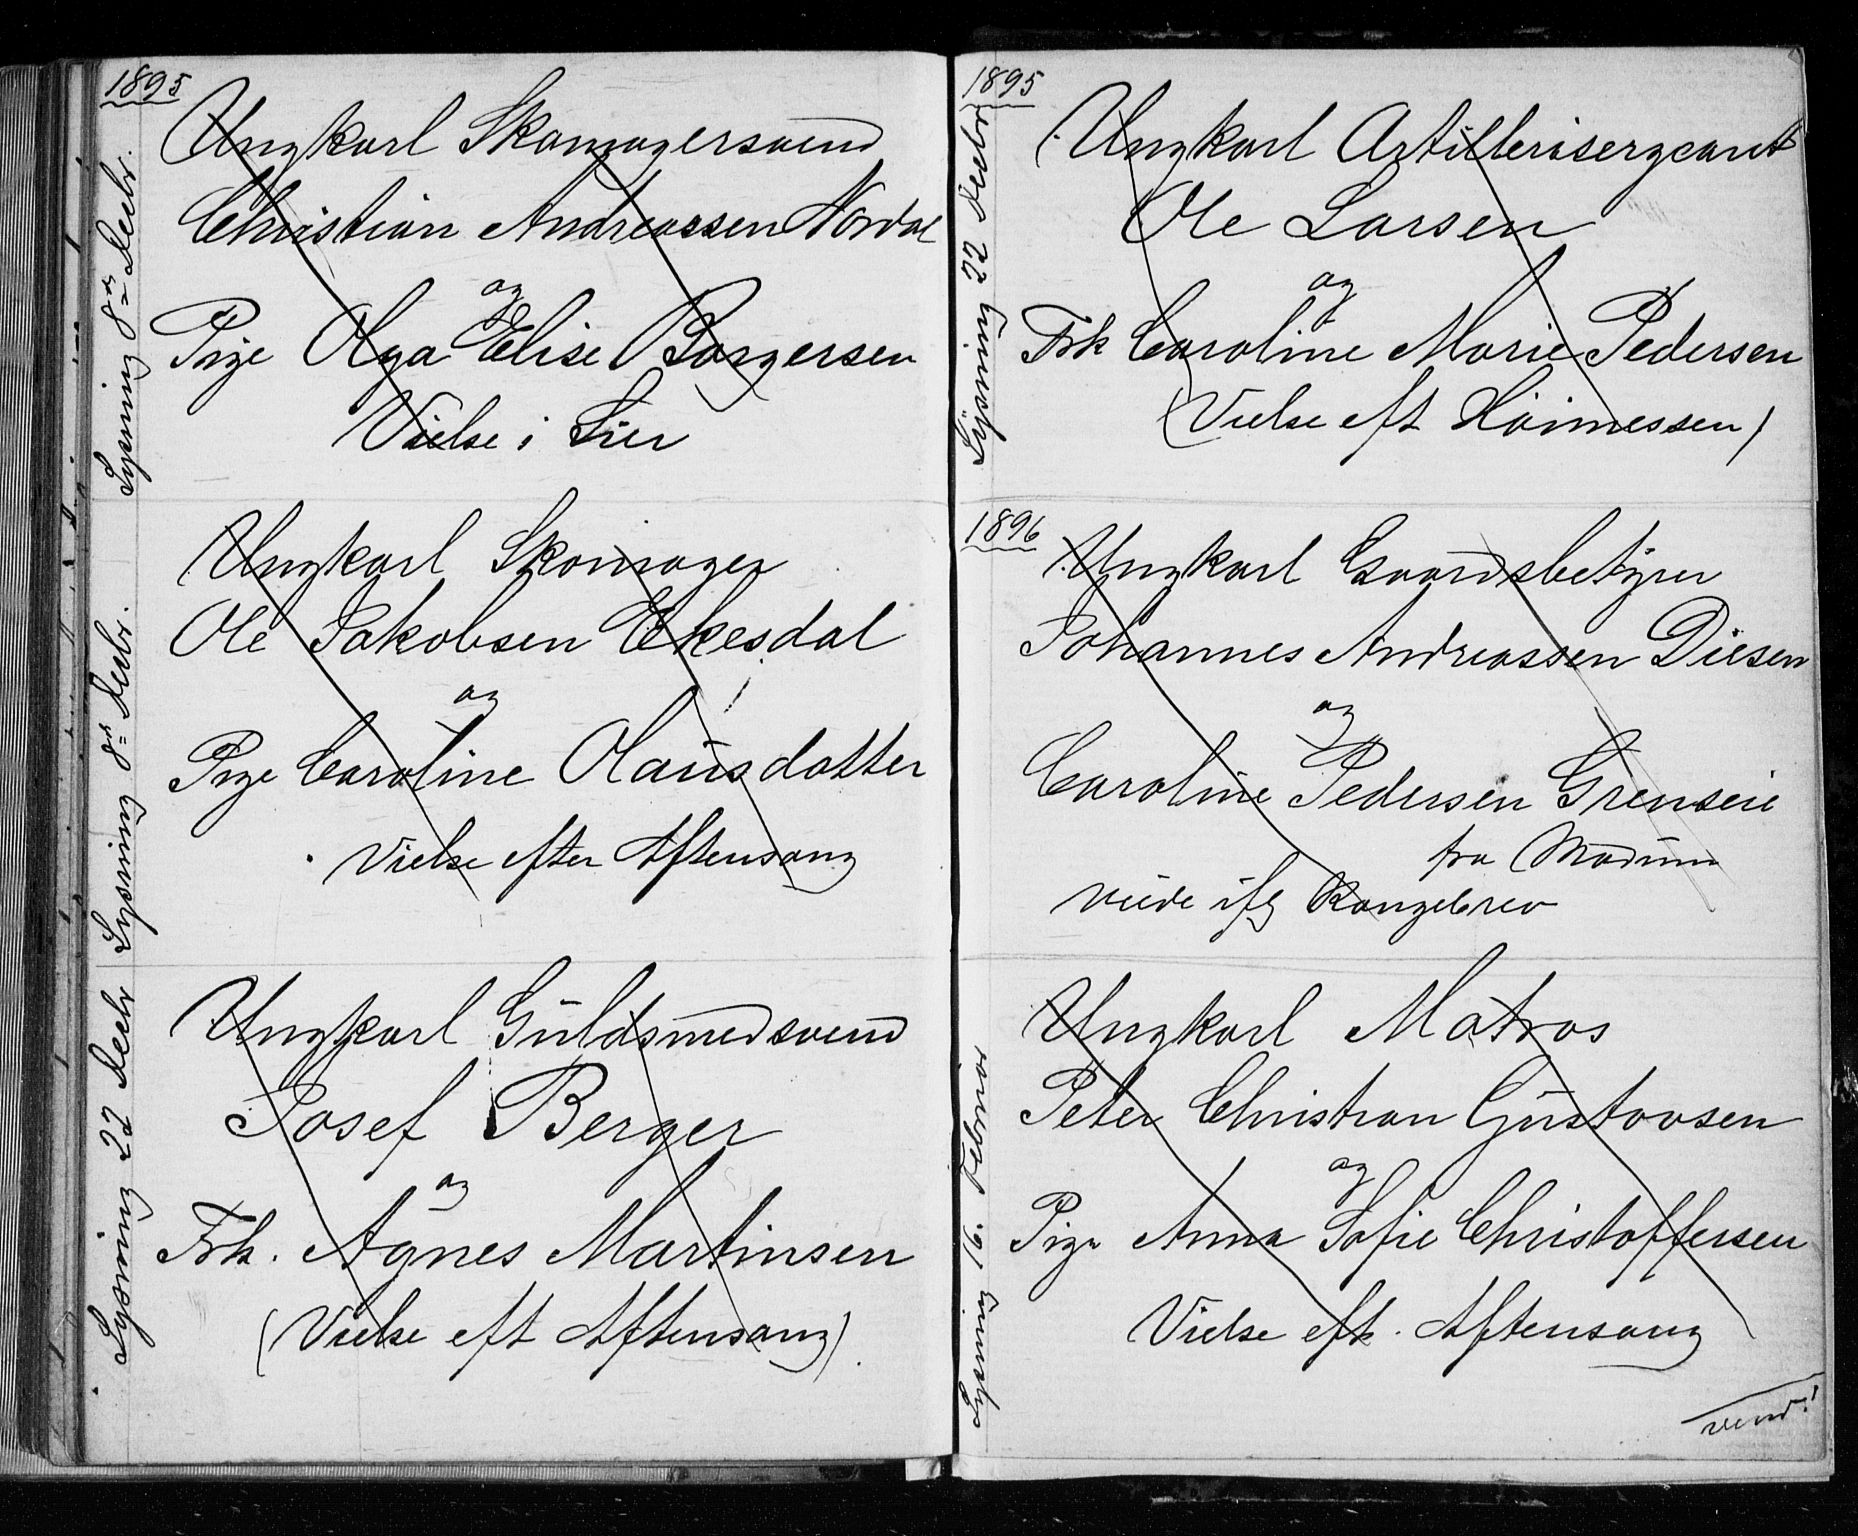 1895
Lysning 8de Decbr.
Ungkarl Skomagersvend
Christian Andreassen Nordal
og
Pige Olga Elise Borgersen
Vielse i Lier
Lysning 8de Decbr.
Ungkarl Skomager
Ole Jakobsen Ekesdal
og
Pige Caroline Olausdatter
Vielse efter Aftensang
Lysning 22 Decbr
Ungkarl Guldsmedsvend
Josef Berger
og
Frk. Agnes Martinsen
(Vielse eft Aftensang)
1895
Lysning 22 Decbr
Ungkarl Artillerisergeant
Ole Larsen
og
Frk Caroline Marie Pedersen
(Vielse eft Høimessen)
1896
Ungkarl Gaardsbestyrer
Johannes Andreassen Diesen
og
Caroline Pedersen Grenseie
fra Modum
viede ifg Kongebrev
Lysning 16. Februar
Ungkarl Matros
Peter Christian Gustavsen
og
Pige Anna Sofie Christoffersen
Vielse eft. Aftensang
vend!